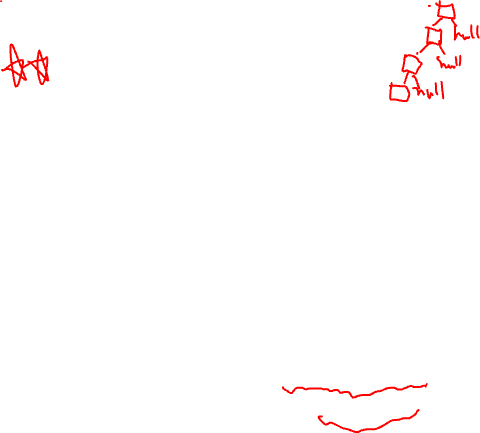 null
null
null